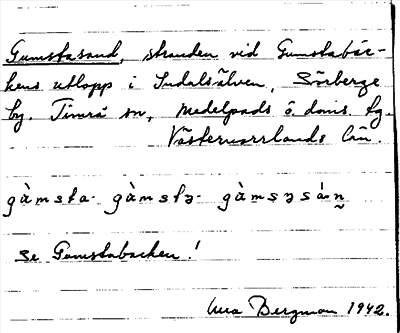 Gumstasand, stranden vid Gumstabäc-
kens utlopp i Indalsälven, Sörberge
by. Timrå sn, Medelpads ö. doms. hg.
Västernorrlands län.
gàmsta- gàmstə- gàmsəsán̰
se Gumstabacken!
Bergman 1942.